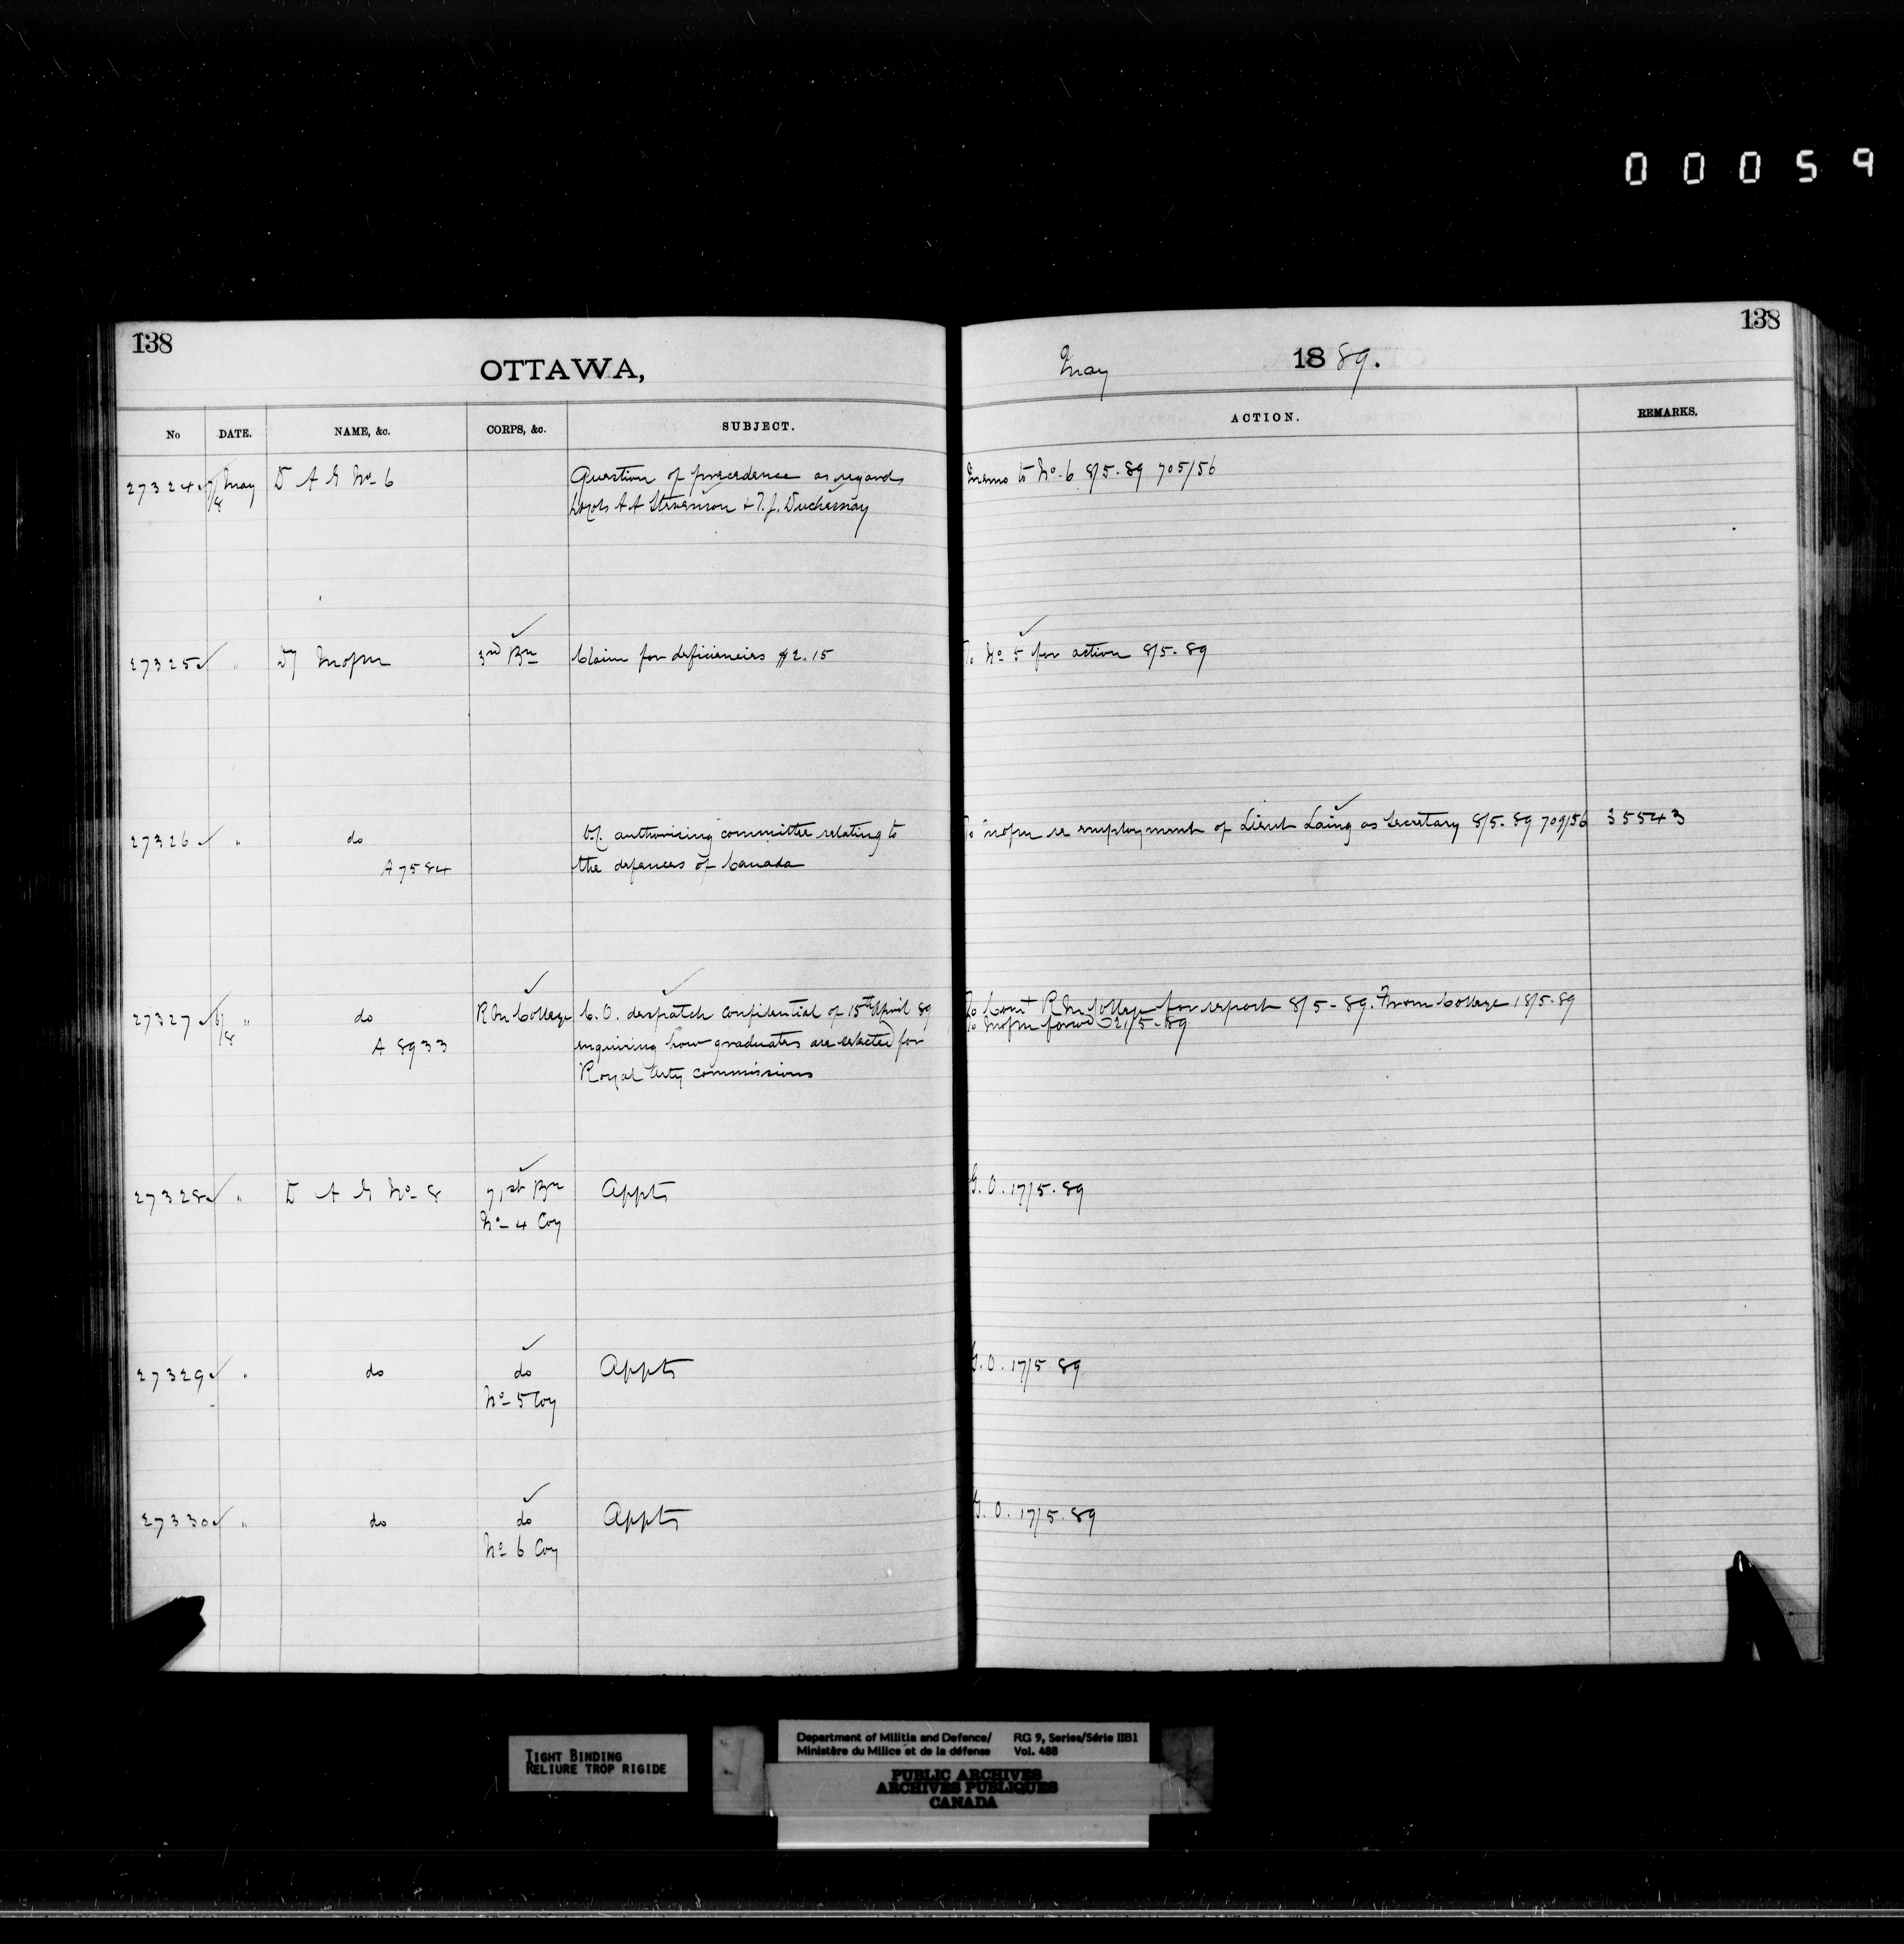 00059
138
OTTAWA,
No DATE. NAME, &c. CORPS, &c. SUBJECT.
27324 7/8 May D A G No 6 Question of precedence as regards
Lt Cols A A Stevenson & T. J. Duchesnay
27325 " D/ Mofm 3rd Bn Claim for deficiencies $2.15
27326 " do authorising committee relating to
A 7584 the defences of Canada
27327 6/8 " do R M College C. O. despatch confidential of 15th April 89
A 8933 enquiring how graduates are selected for
Royal Arty commissions
27328 " D A G No 8 71st Bn Appts
No 4 Coy
27329 " do do Appts
No 5 Coy
27330 " do do Appts
No 6 Coy
138
May 1889.
ACTION. REMARKS.
Memo to No. 6 8/5-89 705/56
To No 5 for action 8/5-89
To Mofm re employment of Lieut Laing as Secretary 8/5-89 709/56 35543
To Comt R M College for report 8/5-89. From College 18/5-89
To Mofm forwd 21/5-89
G. O. 17/5-89
G. O. 17/5 89
G. O. 17/5-89
TIGHT BINDING
RELIURE TROP RIGIDE
Department of Militia and Defence/ RG 9, Series/Série IIB1
Ministère du Milice et de la défense Vol. 488
PUBLIC ARCHIVES
ARCHIVES PUBLIQUES
CANADA